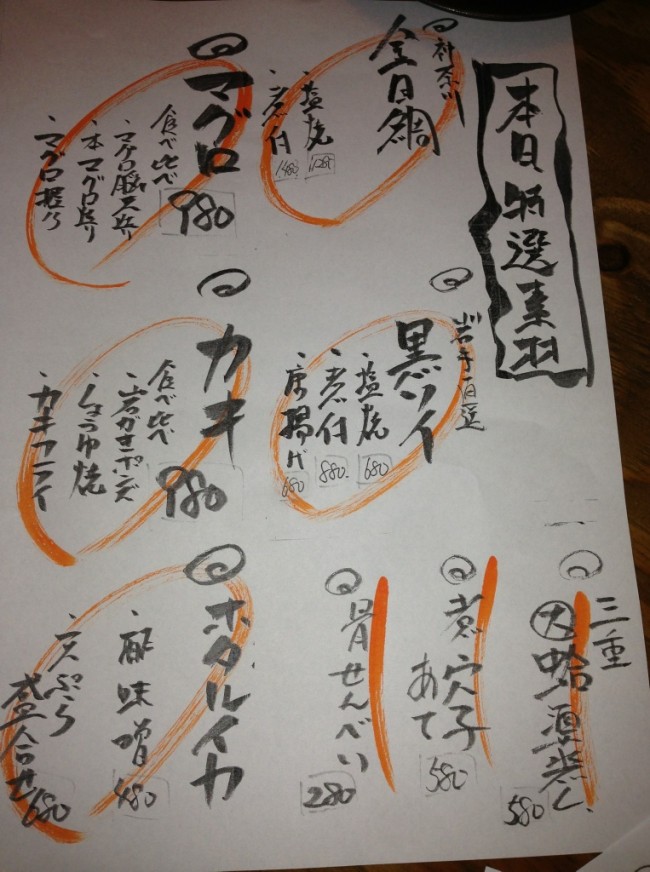 本日特選素材
神奈川
金目鯛
・塩焼 1280
・煮付 1480
岩手直送
黒ソイ
・塩焼 680
・煮付 880
・唐揚げ 680
三重
大蛤酒蒸し 580
煮穴子
あて 580
骨せんべい 280
マグロ
食べ比べ 980
・マグロ脳天炙り
・本マグロ炙り
・マグロ握り
カキ
食べ比べ 980
・岩がきポンズ
・しょうゆ焼
・カキフライ
ホタルイカ
・酢味噌 480
・天ぷら
盛合せ 680